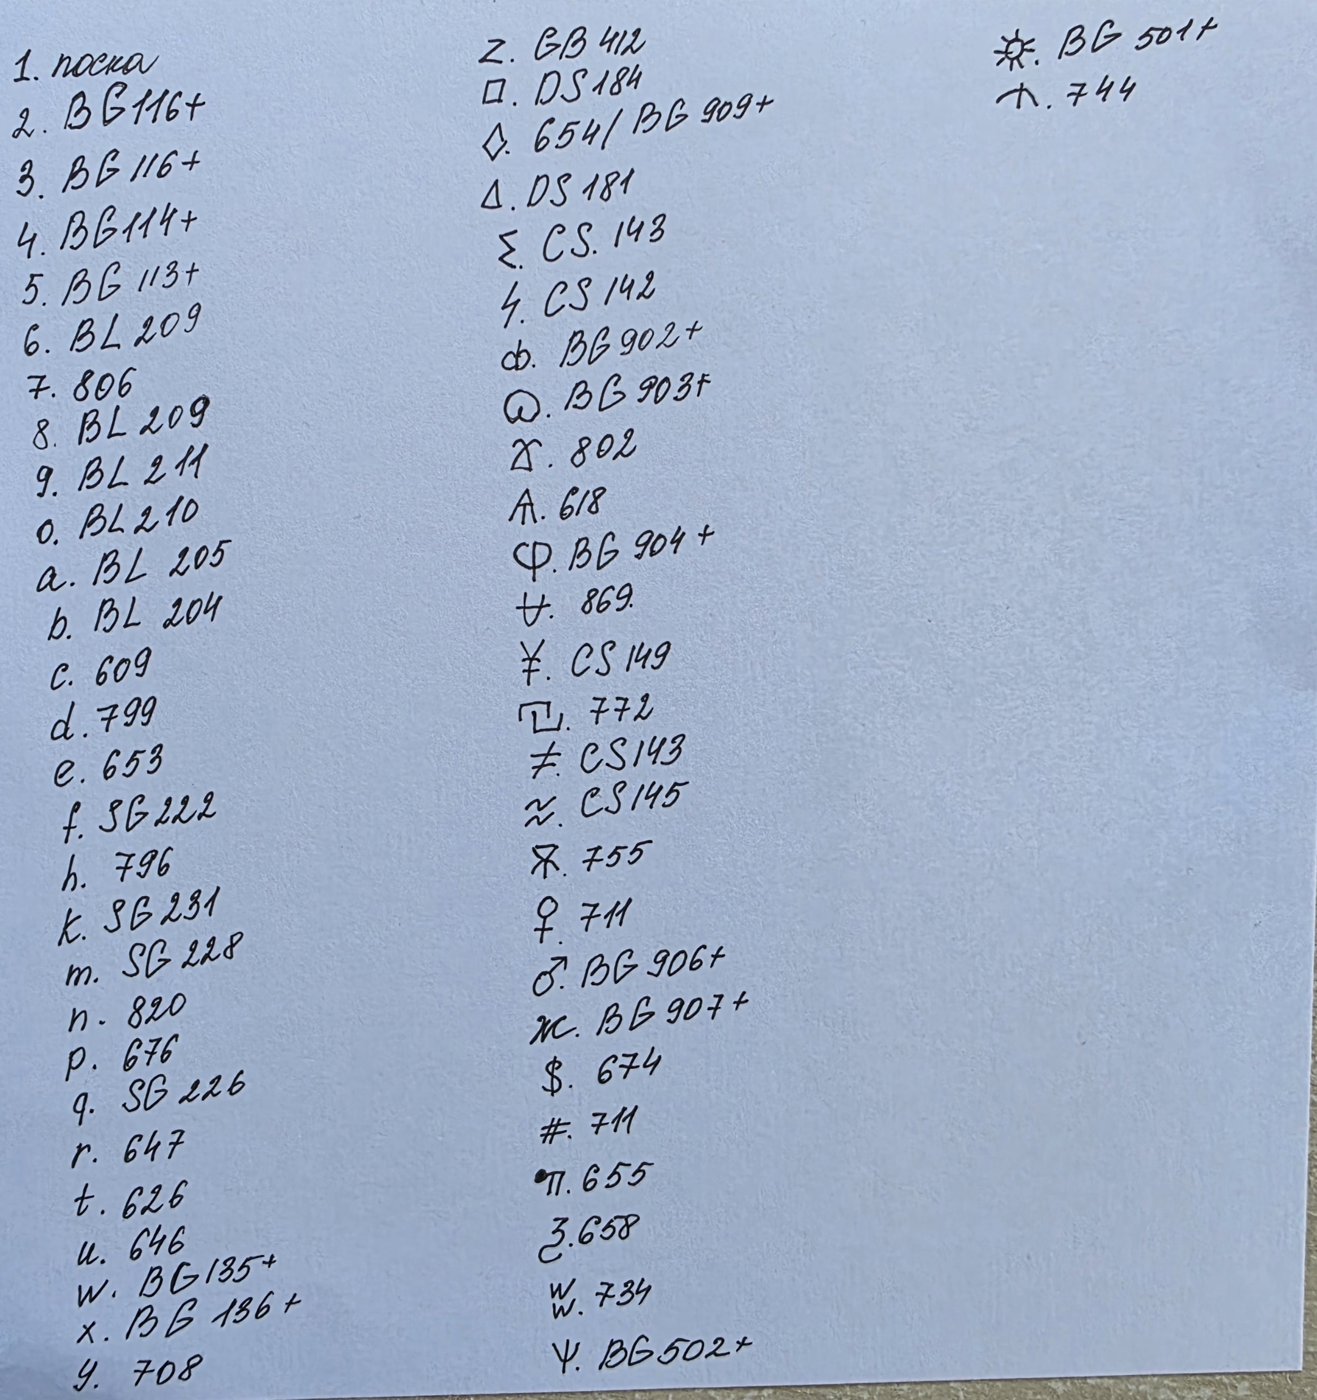 1. поска
2. BG116+
3. BG 116+
4. BG114+
5. BG 113+
6. BL 209
7. 806
8. BL 209
9. BL 211
0. BL 210
a. BL 205
b. BL 204
c. 609
d. 799
e. 653
f. SG 222
h. 796
k. SG 231
m. SG 228
n. 820
p. 676
q. SG 226
r. 647
t. 626
u. 646
w. BG 135+
x. BG 136+
y. 708
z. GB 412
□. DS 184
◊. 654/BG 909+
Δ. DS 181
Σ. CS. 143
ϟ. CS 142
ф. BG 902+
BG 903+
802
A. 618
φ. BG 904+
869.
¥. CS 149
772
≠. CS143
≈. CS145
755
♀. 711
♂. BG 906+
ж. BG 907+
$. 674
#. 711
π. 655
З. 658
w w. 734
Ψ. BG502+
☼. BG 501+
744